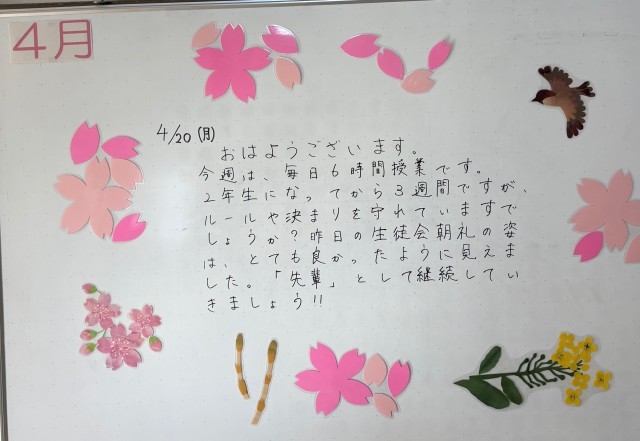 4月
4/20(月)
おはようございます。
今週は、毎日6時間授業です。
2年生になってから3週間ですが、
ルールや決まりを守れていますで
しょうか?昨日の生徒会朝礼の姿
は、とても良かったように見えま
した。「先輩」として継続してい
きましょう!!